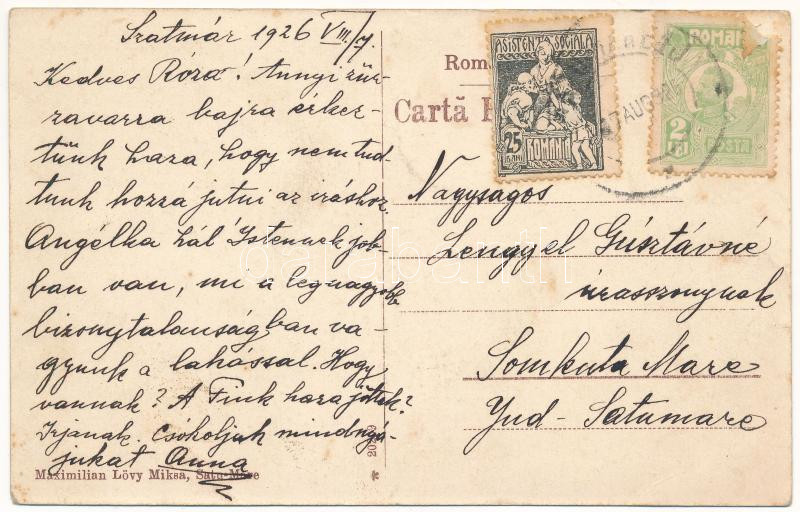 Szatmár 1926 VIII/7.
Kedves Róza! Annyi zür-
zavarra bajra érkez-
tünk haza, hogy nem tud-
tunk hozzá jutni az iráshoz.
Angélka hál Istennek job-
ban van, mi a legnagyobb
bizonytalanságban va-
gyunk a lakással. Hogy
vannak? A Fiuk haza jöttek?
Irjanak. Csókoljuk mindnyá-
jukat Anna
Maximilian Lövy Miksa, Satu-Mare
2029
Rom
Cartă
ASISTENȚA SOCIALA
25
BANI
ROMANIA
ROMANI
2
LEI
POSTA
7 AUG 926
Nagyságos
Lengyel Gusztávné
úrasszonynak
Somkuta Mare
Jud - Satumare
darabanth